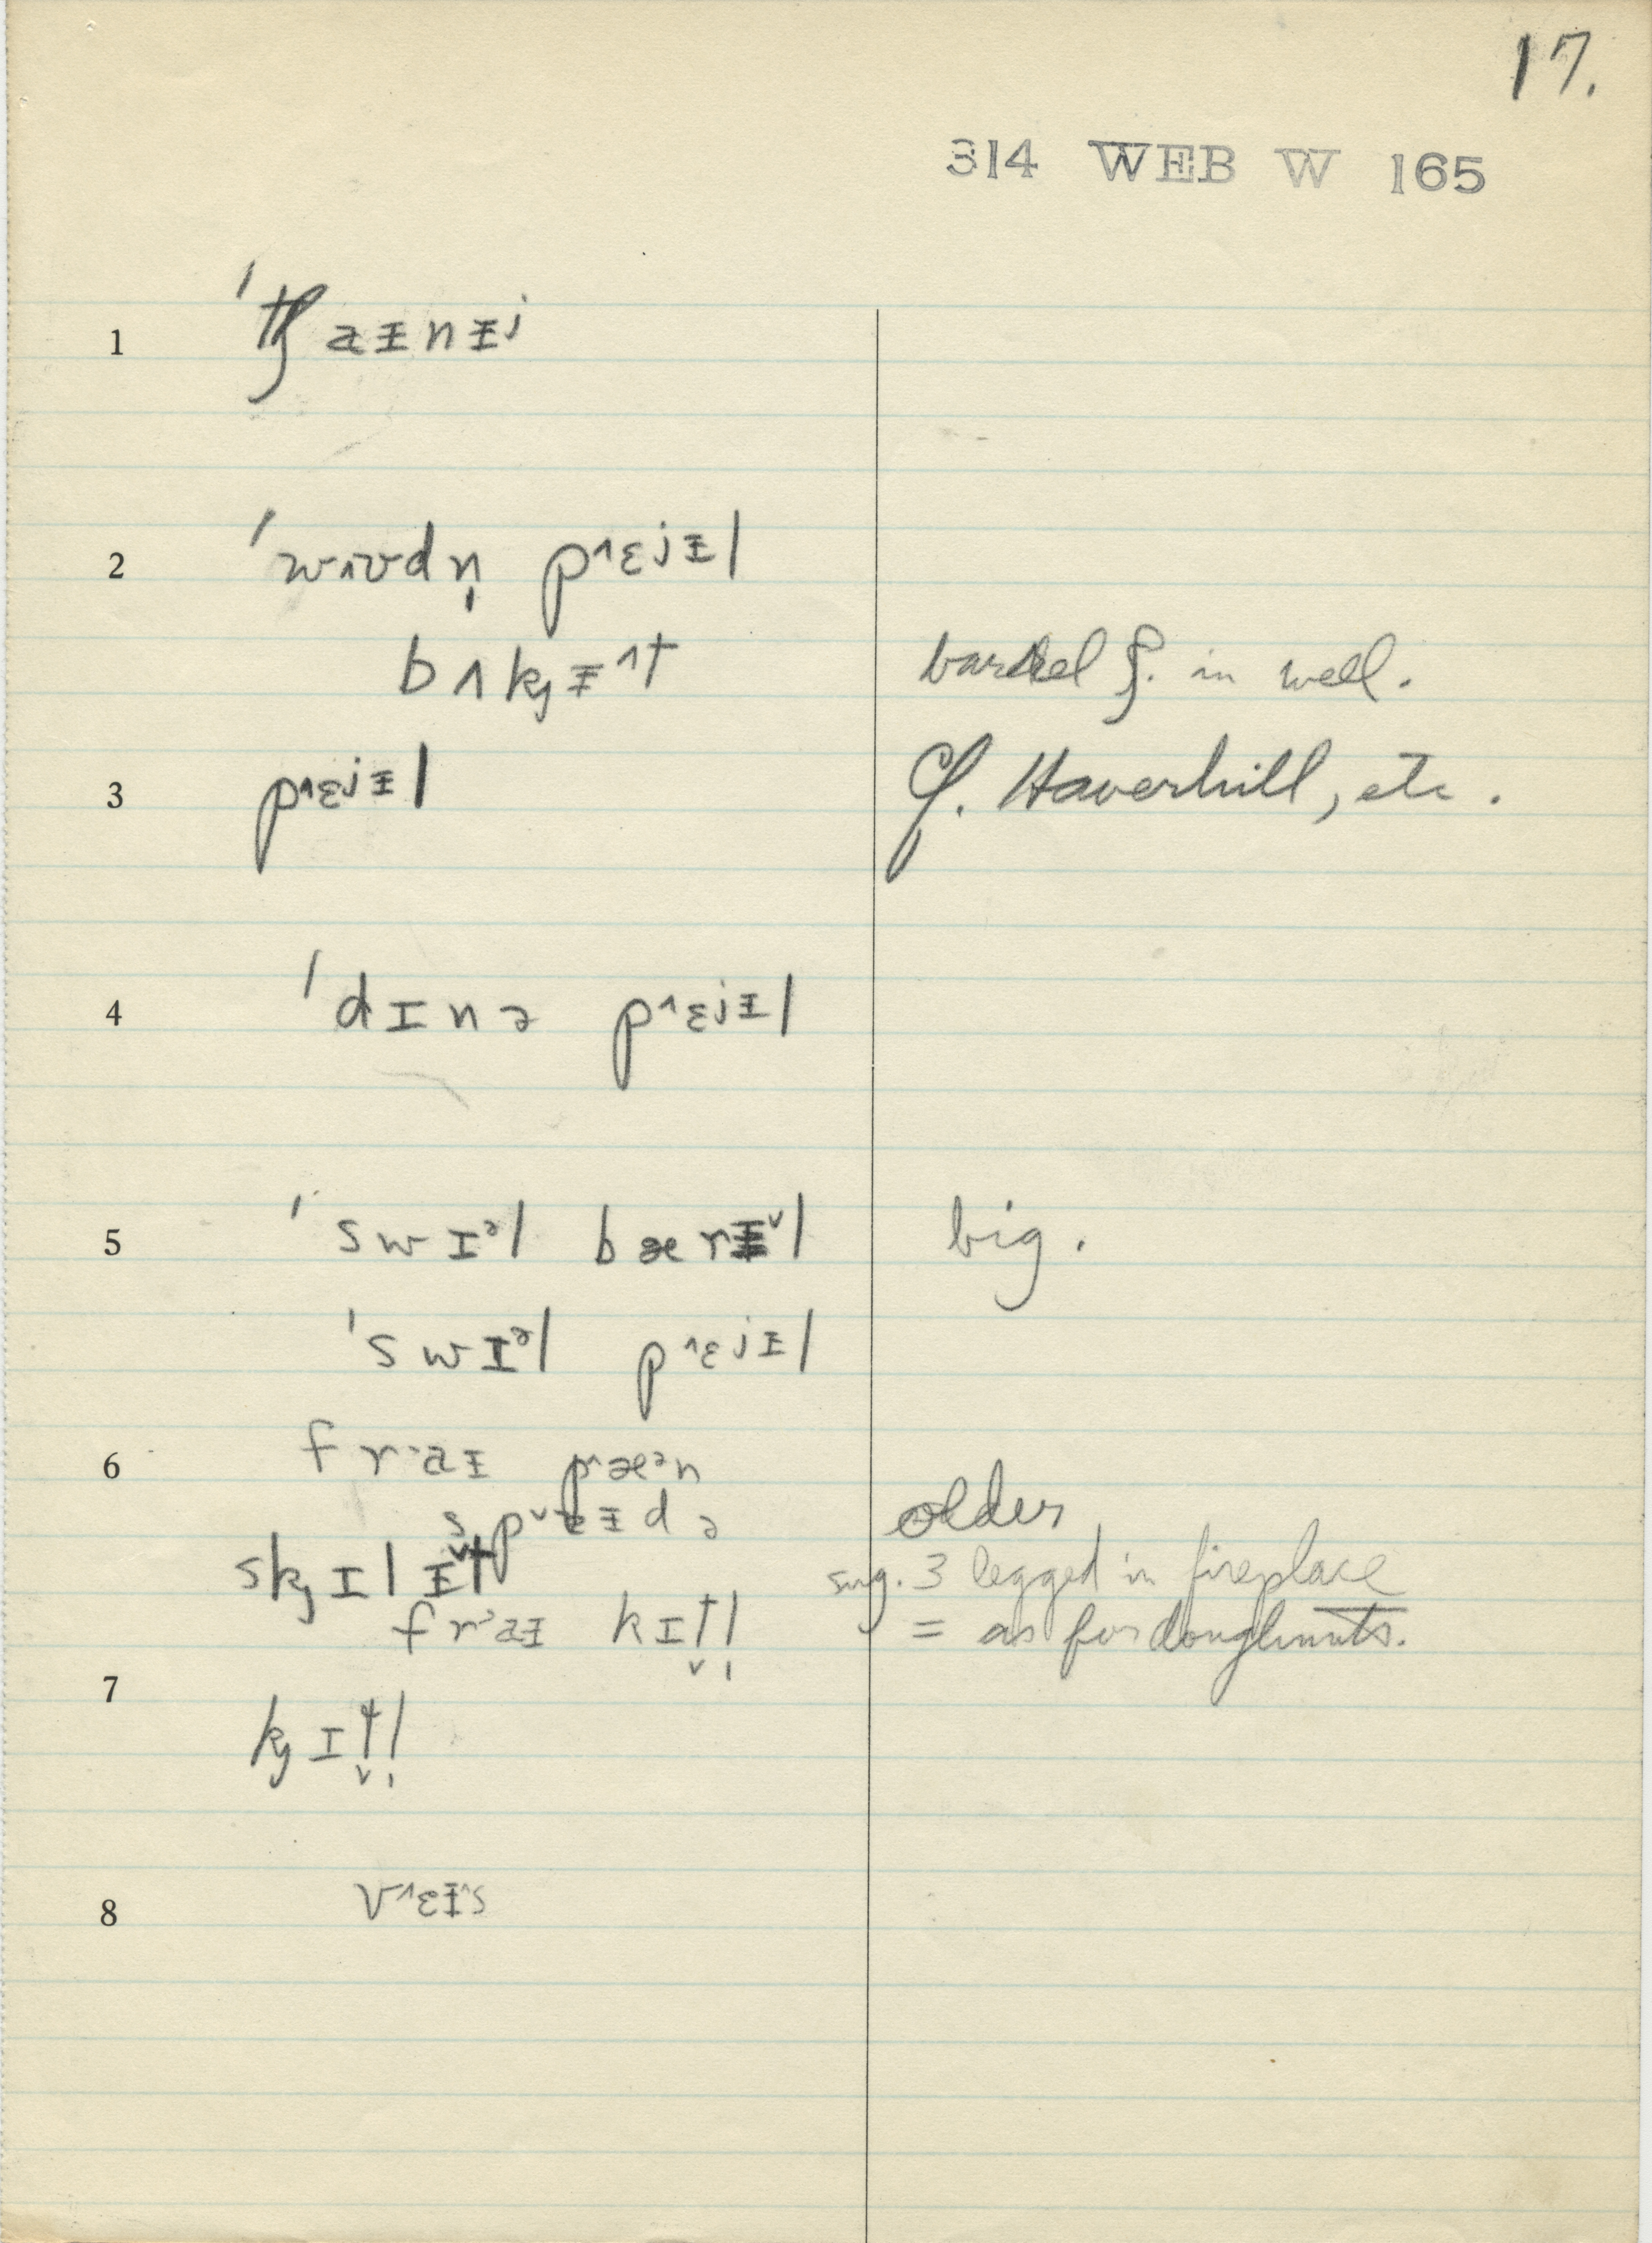 17.
314 WEB W 165
1 ˈtʃaɨnɨʲ
2 ˈwʌʊdn̩ pˆɛʲɨl
bʌkⱼɨˆt barrel f. in well.
3 pˆɛʲɨl Cf. Haverhill, etc.
4 ˈdɪnə pˆɛʲɨl
5 ˈswɪᵊl bærɨˇl big.
ˈswɪᵊl pˆɛʲɨl
6 fraɨ pˆæᵊn
spˇɨdə older
skⱼɪlɨˇt sug. 3 legged in fireplace
fraɨ kɪt̬l̩ = as for doughnuts.
7 kⱼɪt̬l̩
8 vˆɛɨˆs